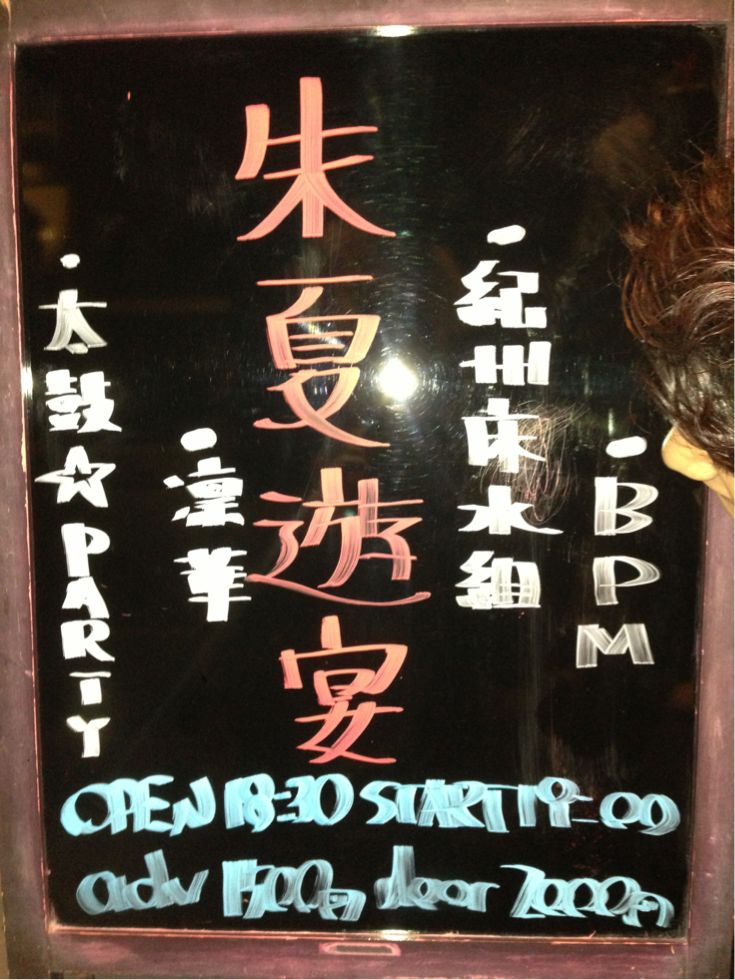 ・BPM
・紀州床水組
朱夏遊宴
・凛華
・太鼓☆PARTY
OPEN 18:30 START 19:00
adv 1500円 door 2000円